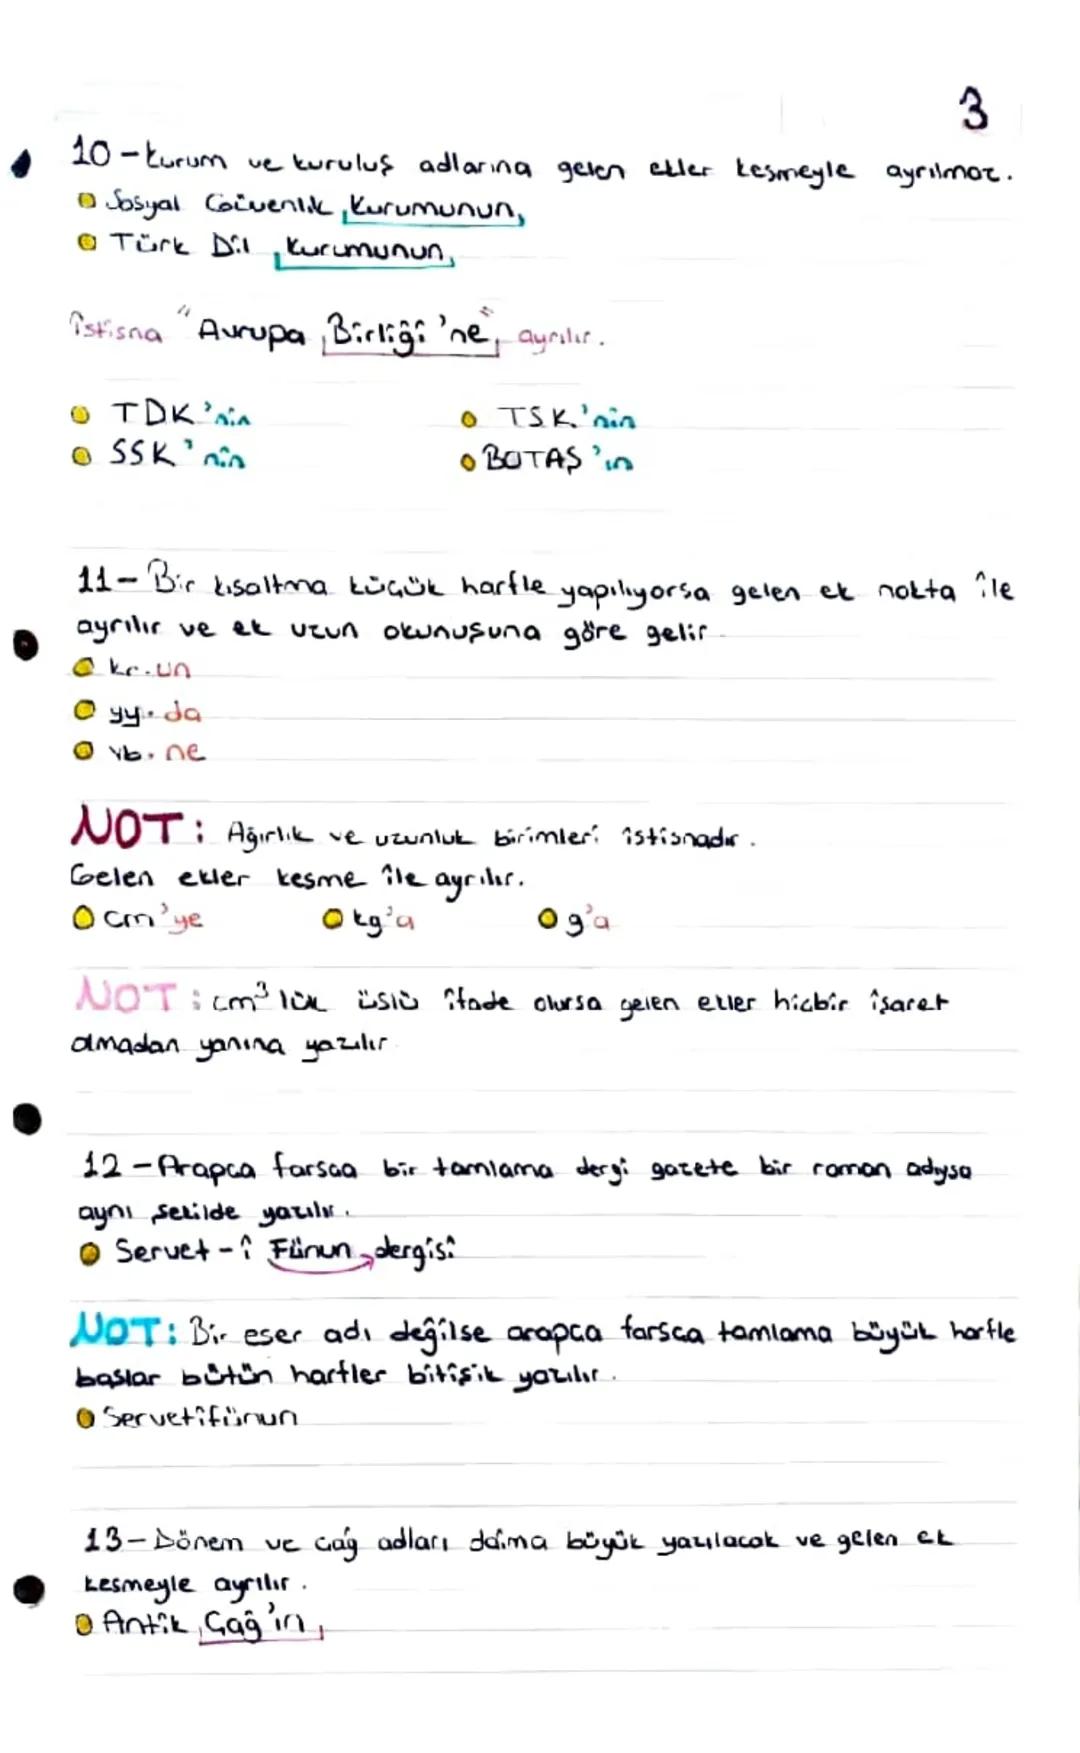 3
10-Kurum ve kuruluş adlarına gelen ekler kesmeyle ayrılmaz.
Sosyal Güvenlik Kurumunun
Türk Dil Kurumunun
İstisna "Avrupa Birliği'ne" ayrılır.
TDK'nin TSK'nin
SSK'nin BOTAŞ'ın
11- Bir kısaltma küçük harfle yapılıyorsa gelen ek nokta ile
ayrılır ve ek uzun okunuşuna göre gelir
kr.un
yy.da
vb.ne
NOT: Ağırlık ve uzunluk birimleri istisnadır.
Gelen ekler kesme ile ayrılır.
cm'ye kg'a g'a
NOT: cm³ lük üslü ifade olursa gelen ekler hiçbir işaret
olmadan yanına yazılır
12-Arapca farsça bir tamlama dergi gazete bir roman adıysa
aynı şekilde yazılır.
Servet-i Fünun dergisi
NOT: Bir eser adı değilse arapça farsça tamlama büyük harfle
başlar bütün harfler bitişik yazılır.
Servetifünun
13-Dönem ve çağ adları daima büyük yazılacak ve gelen ek
kesmeyle ayrılır.
Antik Çağ'ın